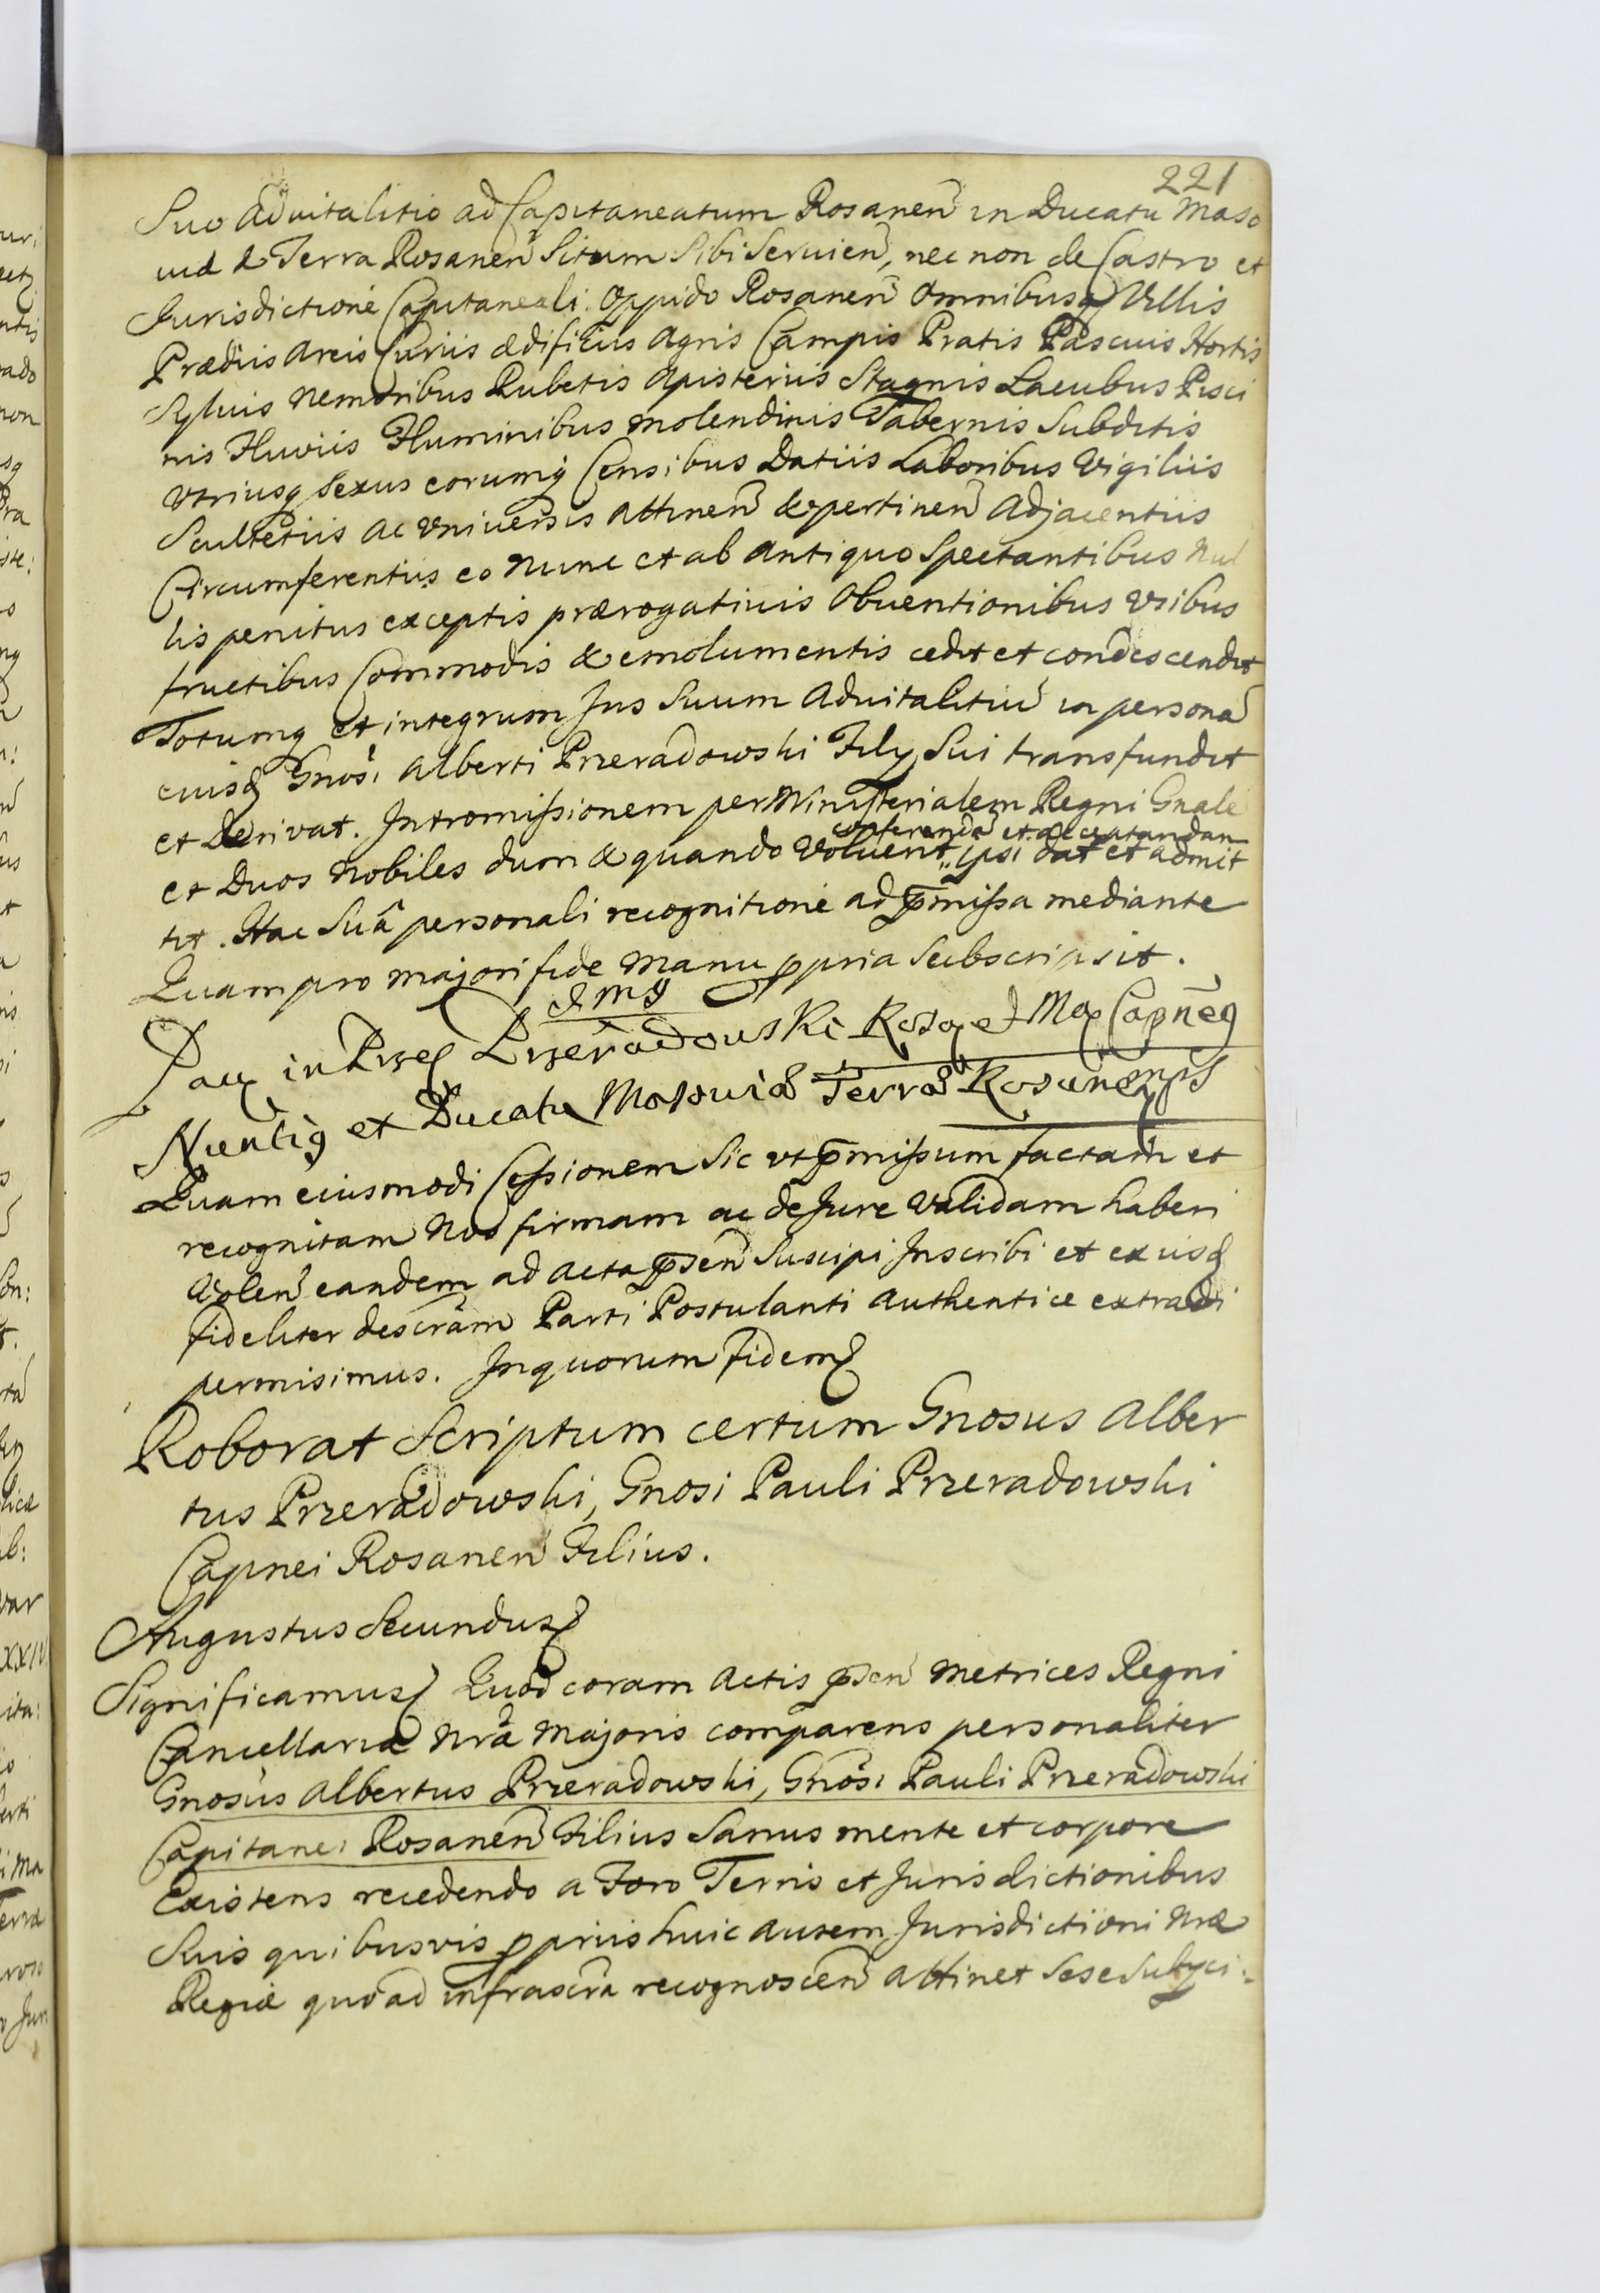 221
Suo Aduitalitio ad Capitaneatum Rosanen̄ in Ducatu Maso
uiæ & Terra Rosanen̄ Situm Sibi Seruien̄, nec non de Castro et
Jurisdictione Capitaneali Oppido Rosanen̄ Omnibusq Villis
Prædiis Areis Curiis ædificiis Agris Campis Pratis Pascuis Hortis
Syluis Nemoribus Rubetis Apisteriis Stagnis Lacubus Pisci
nis Fluviis Fluminibus Molendinis Tabernis Subditis
Vtriusq Sexus eorumq Censibus Datiis Laboribus Vigiliis
Scultetiis ac Vniuersis Attinen̄ & pertinen̄ Adjacentiis
Circumferentiis eo Nunc et ab Antiquo Spectantibus Nul
lis penitus exceptis prærogatiuis Obuentionibus Vsibus
fructibus Commodis & emolumentis cedit et condescendit
Totumq et integrum Jus Suum Aduitalitiū in personā
eiusd Gnosi Alberti Przeradowski Filij Sui transfundit
et Derivat. Intromissionem per Ministerialem Regni Gnale
conferendā et acceptandam
et Duos Nobiles dum & quando Voluerit ipsi dat et admit
tit. Hac Suâ personali recognitione ad p̄missa mediante
Quam pro majori fide Manu ppria Subscripsit.
Przeradowski Rosa et Capneq
Nuntiq et Ducatu Masouiæ Terræ Rosanensis
Quam eiusmodi Cessionem Sic vt p̄missum factam et
recognitam Nos firmam ac de Jure Validam haberi
Volen̄ eandem ad Acta p̄sen̄ Suscipi Inscribi et ex iisd
fideliter descrām Parti Postulanti Authentice extradi
permisimus. In quorum fidem
Roborat Scriptum certum Gnosus Alber
tus Przeradowski, Gnosi Pauli Przeradowski
Capnei Rosanen̄ Filius.
Augustus Secundus
Significamus Quod coram Actis p̄sen̄ Metrices Regni
Cancellariæ Nræ Majoris comparens personaliter
Gnosus Albertus Przeradowski, Gnosi Pauli Przeradowski
Capitanei Rosanen̄ Filius Sanus mente et corpore
Existens recedendo a Foro Terris et Jurisdictionibus
Suis quibusvis ppriis huic autem Jurisdictioni Nræ
Regiæ quo ad infrascrā recognoscen̄ Attinet Sese Subyci: